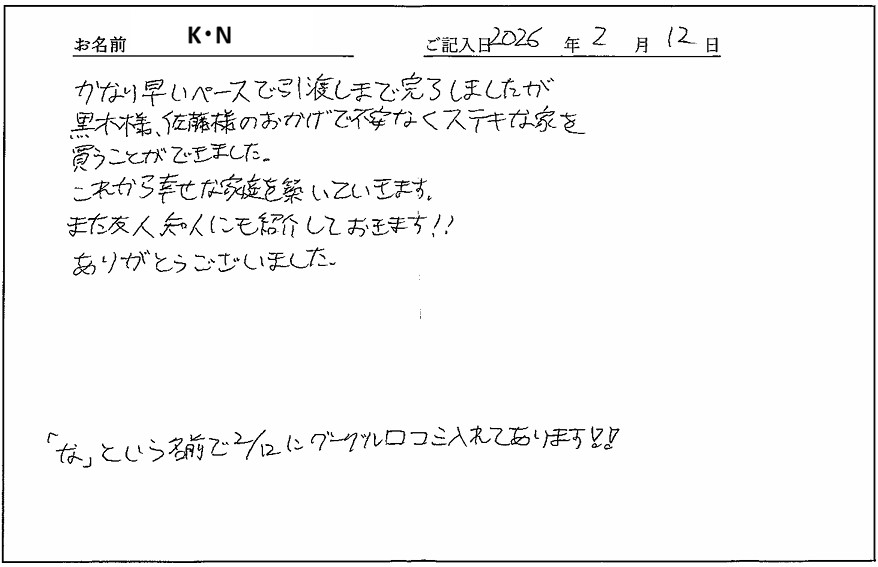 お名前 K・N ご記入日 2026 年 2 月 12 日
かなり早いペースで引渡しまで完了しましたが
黒木様、佐藤様のおかげで不安なくステキな家を
買うことができました。
これから幸せな家庭を築いていきます。
また友人、知人にも紹介しておきます!!
ありがとうございました。
「な」という名前で2/12にグーグル口コミ入れてあります!!